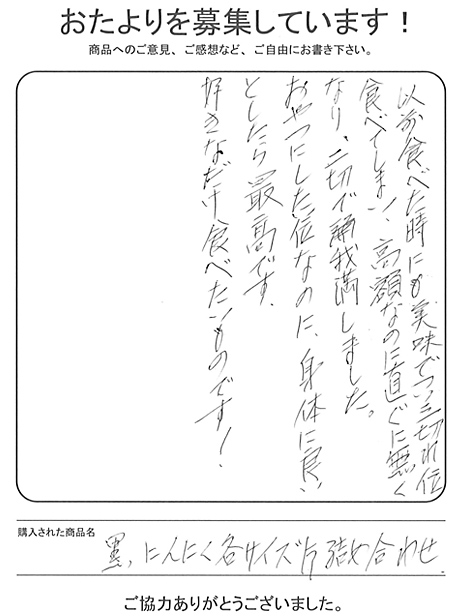 おたよりを募集しています！
商品へのご意見、ご感想など、ご自由にお書き下さい。
以前食べた時にも美味でつい三切れ位
食べてしまい、高額なのに直ぐに無く
なり、二切で我満しました。
おやつにした位なのに、身体に良い
としたら最高です。
好きなだけ食べたいものです！
購入された商品名
黒、にんにく各サイズ詰め合わせ
ご協力ありがとうございました。